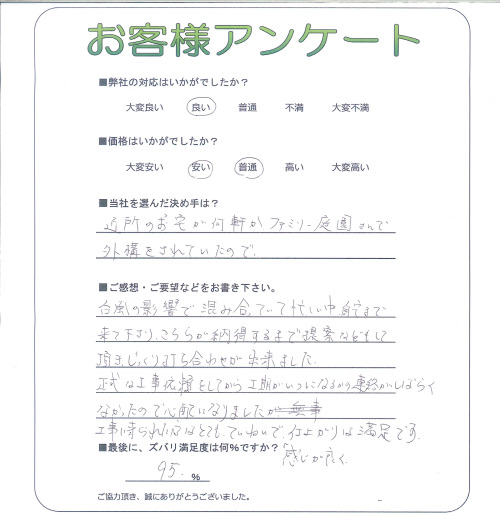 お客様アンケート
■弊社の対応はいかがでしたか？
大変良い 良い 普通 不満 大変不満
■価格はいかがでしたか？
大変安い 安い 普通 高い 大変高い
■当社を選んだ決め手は？
近所のお宅が何軒かファミリー庭園さんで
外構をされていたので。
■ご感想・ご要望などをお書き下さい。
台風の影響で混み合っていて忙しい中、自宅まで
来て下さり、こちらが納得するまで提案などをして
頂き、じっくり打ち合わせが出来ました。
正式な工事依頼をしてから工期がいつになるかの連絡がしばらく
なかったので心配になりましたが
工事に来られた方はとても、ていねいで、仕上がりは満足です。
感じが良く、
■最後に、ズバリ満足度は何%ですか？
95. %
ご協力頂き、誠にありがとうございました。